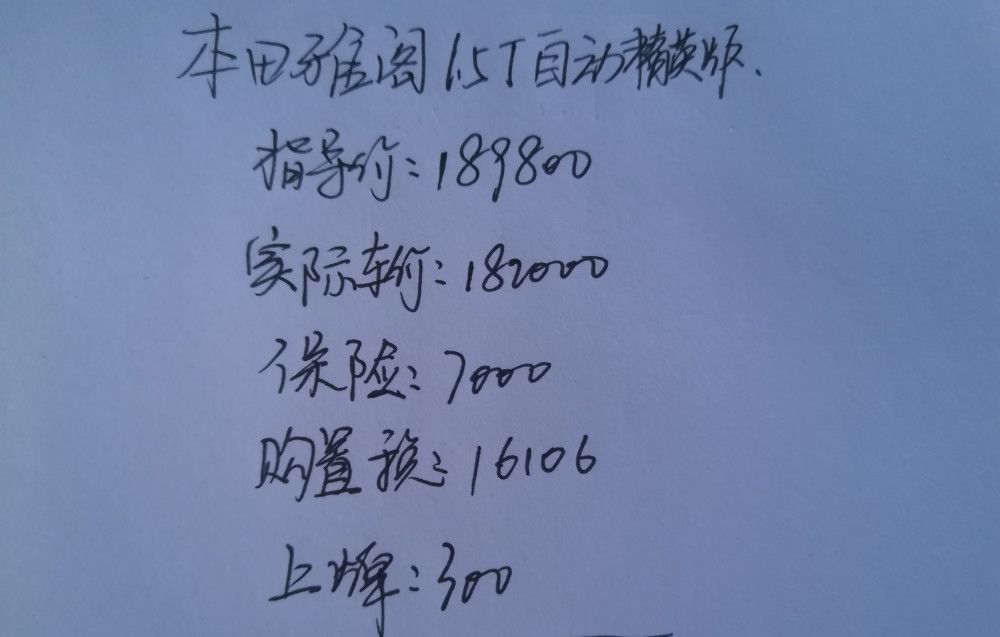 本田雅阁1.5T自动精英版.
指导价:189800
实际车价:182000
保险:7000
购置税:16106
上牌:300